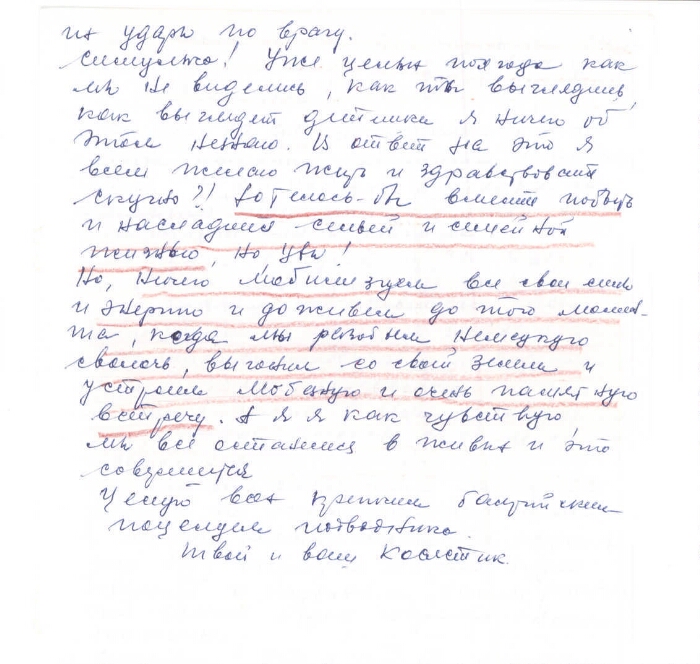 их удары по врагу.
Симулька! Уже целых полгода как
мы не виделись, как ты выглядишь,
как выглядят детишки я ничего об
этом незнаю. В ответ на это я
всем желаю жить и здравствовать
скучно?! Хотелось-бы вместе побыть
и насладится семьей и семейной
жизнью, но увы!
Но, ничего мобилизуем все свои силы
и энергию и доживем до того момен-
та, когда мы разобьем немецкую
сволочь, выгоним со своей земли и
устроим любезную и очень памятную
встречу. А я я как чувствую
мы все останемся в живых и это
совершится
Целую вас крепким балтийским
поцелуем подводника.
Твой и ваш Костик.